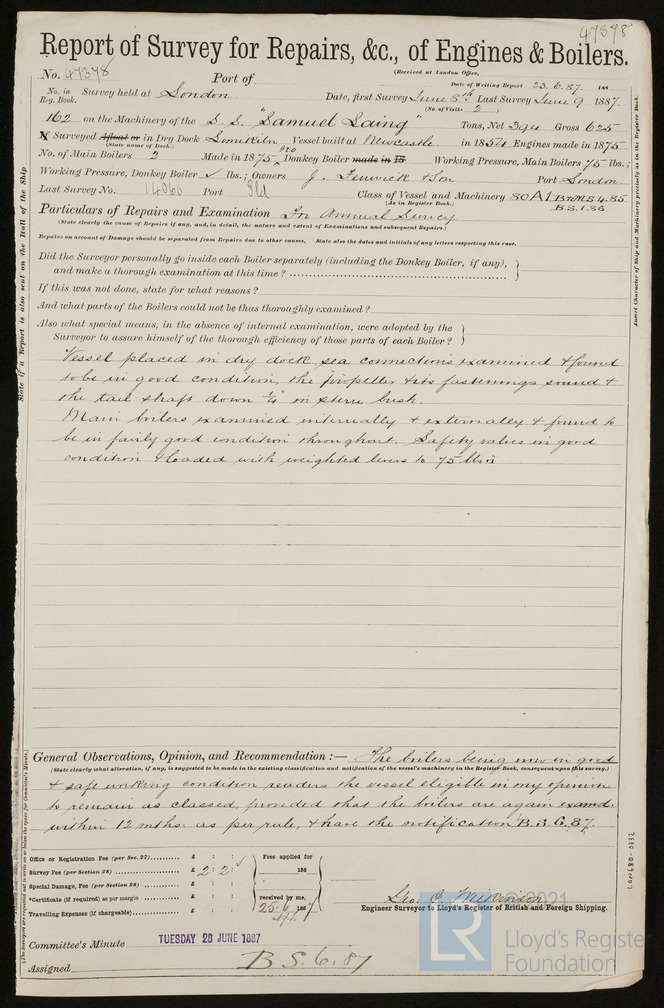 47378
Report of Survey for Repairs, &c., of Engines & Boilers.
No. 47378 Port of (Received at London Office,
Date of Writing Report 23.6.87. 188
No. in Reg. Book. Survey held at London Date, first Survey June 8th Last Survey June 9 1887.
(No. of Visits 2 )
162 on the Machinery of the S.S. "Samuel Laing" Tons, Net 394 Gross 625
Surveyed Afloat or in Dry Dock Limekiln Vessel built at Newcastle in 1854 Engines made in 1875
(State name of Dock.)
No. of Main Boilers 2 Made in 1875, No Donkey Boiler made in 18 Working Pressure, Main Boilers 75 lbs.;
Working Pressure, Donkey Boiler ✓ lbs.; Owners J. Fenwick & Son Port London
Last Survey No. 14060 Port Sld Class of Vessel and Machinery 80A1
(As in Register Book.)
B.S. 1.86
Particulars of Repairs and Examination For Annual Survey
(State clearly the cause of Repairs if any, and, in detail, the nature and extent of Examinations and subsequent Repairs.)
Repairs on account of Damage should be separated from Repairs due to other causes. State also the dates and initials of any letters respecting this case.
Did the Surveyor personally go inside each Boiler separately (including the Donkey Boiler, if any),
and make a thorough examination at this time?
If this was not done, state for what reasons?
And what parts of the Boilers could not be thus thoroughly examined?
Also what special means, in the absence of internal examination, were adopted by the
Surveyor to assure himself of the thorough efficiency of those parts of each Boiler?
Vessel placed in dry dock sea connections examined & found
to be in good condition, the propeller & its fastenings sound &
the tail shaft down ¼" in stern bush.
Main boilers examined internally & externally & found to
be in fairly good condition throughout. Safety valves in good
condition & loaded with weighted levers to 75 lbs
General Observations, Opinion, and Recommendation:— The boilers being now in good
(State clearly what alteration, if any, is suggested to be made in the existing classification and notification of the vessel's machinery in the Register Book, consequent upon this survey.)
& safe working condition renders the vessel eligible in my opinion
to remain as classed, provided that the boilers are again examd
within 12 mths. as per rule, & have the notification B.S. 6.87.
Office or Registration Fee (per Sec. 27) £ : : Fees applied for
Survey Fee (per Section 28) £ 2 : 2 : 188
Special Damage, Fee (per Section 28) £ : :
*Certificate (if required) as per margin £ : : received by me,
Travelling Expenses (if chargeable) £ : : 25.6.1887
Engineer Surveyor to Lloyd's Register of British and Foreign Shipping.
Committee's Minute TUESDAY 28 JUNE 1887
Assigned B S. 6.87
State if a Report is also sent on the Hull of the Ship
Insert Character of Ship and Machinery precisely as in the Register Book.
LON680-0332
© 2021
LR
Lloyd's Register
Foundation